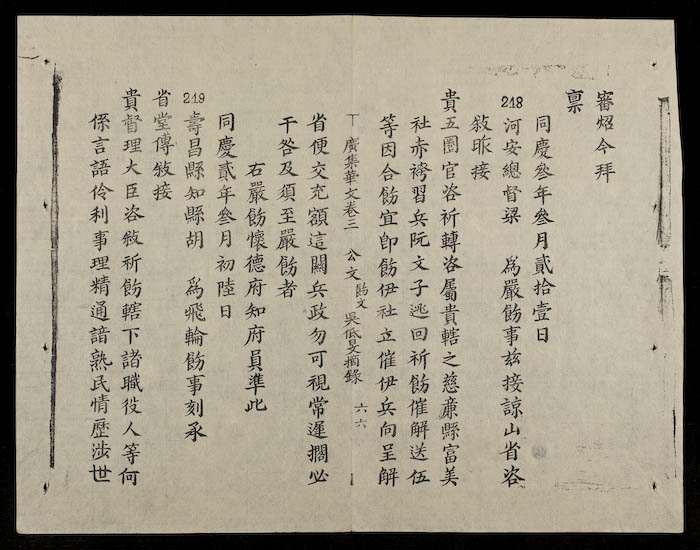 審炤今拜
稟
同慶叁年叁月貳拾壹日
218 河安總督梁 為嚴飭事茲接諒山省咨
敍昨接
貴五圍官咨祈轉咨屬貴轄之慈廉縣富美
社赤袴習兵阮文子逃回祈飭催解送伍
等因合飭宜卽飭伊社立催伊兵向呈解
丁 廣集華文卷三 公文 飭文 吳低旻摘錄 六六
省便交充額這關兵政勿可視常遲擱必
干咎及須至嚴飭者
右嚴飭懷德府知府員準此
同慶貳年叁月初陸日
219 壽昌縣知縣胡 為飛輪飭事刻承
省堂傳敍接
貴督理大臣咨敍祈飭轄下諸職役人等何
係言語伶利事理精通諳熟民情歷涉世